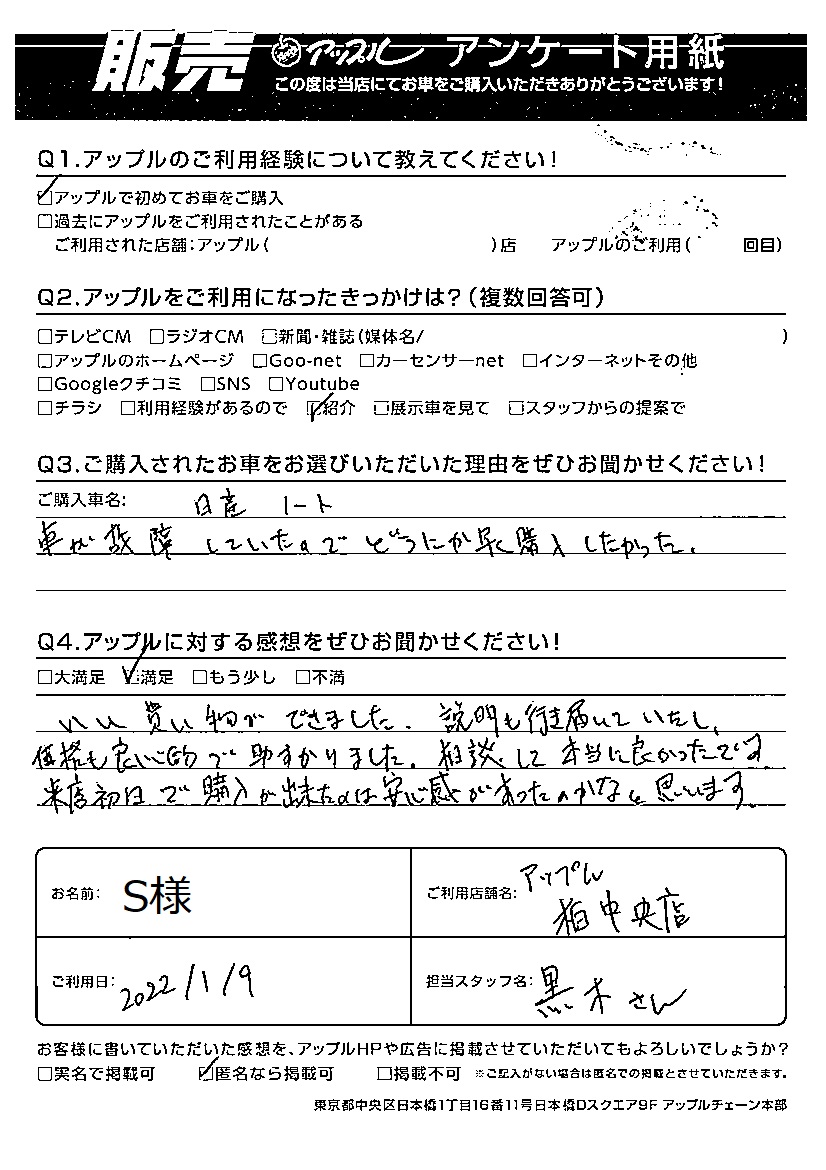 販売 アップル アンケート用紙
この度は当店にてお車をご購入いただきありがとうございます!
Q1.アップルのご利用経験について教えてください!
☑アップルで初めてお車をご購入
□過去にアップルをご利用されたことがある
ご利用された店舗:アップル( )店 アップルのご利用( 回目)
Q2.アップルをご利用になったきっかけは?(複数回答可)
□テレビCM □ラジオCM □新聞・雑誌(媒体名/ )
□アップルのホームページ □Goo-net □カーセンサーnet □インターネットその他
□Googleクチコミ □SNS □Youtube
□チラシ □利用経験があるので ☑紹介 □展示車を見て □スタッフからの提案で
Q3.ご購入されたお車をお選びいただいた理由をぜひお聞かせください!
ご購入車名: 日産 ノート
車が故障していたのでどうにか早く購入したかった。
Q4.アップルに対する感想をぜひお聞かせください!
□大満足 ☑満足 □もう少し □不満
いい買い物ができました。説明も行き届いていたし、
価格も良心的で助かりました。相談して本当に良かったです。
来店初日で購入が出来たのは安心感があったのかなと思います。
お名前: S様 ご利用店舗名: アップル
柏中央店
ご利用日: 2022/1/9 担当スタッフ名: 黒木さん
お客様に書いていただいた感想を、アップルHPや広告に掲載させていただいてもよろしいでしょうか?
□実名で掲載可 ☑匿名なら掲載可 □掲載不可 ※ご記入がない場合は匿名での掲載とさせていただきます。
東京都中央区日本橋1丁目16番11号日本橋Dスクエア9F アップルチェーン本部